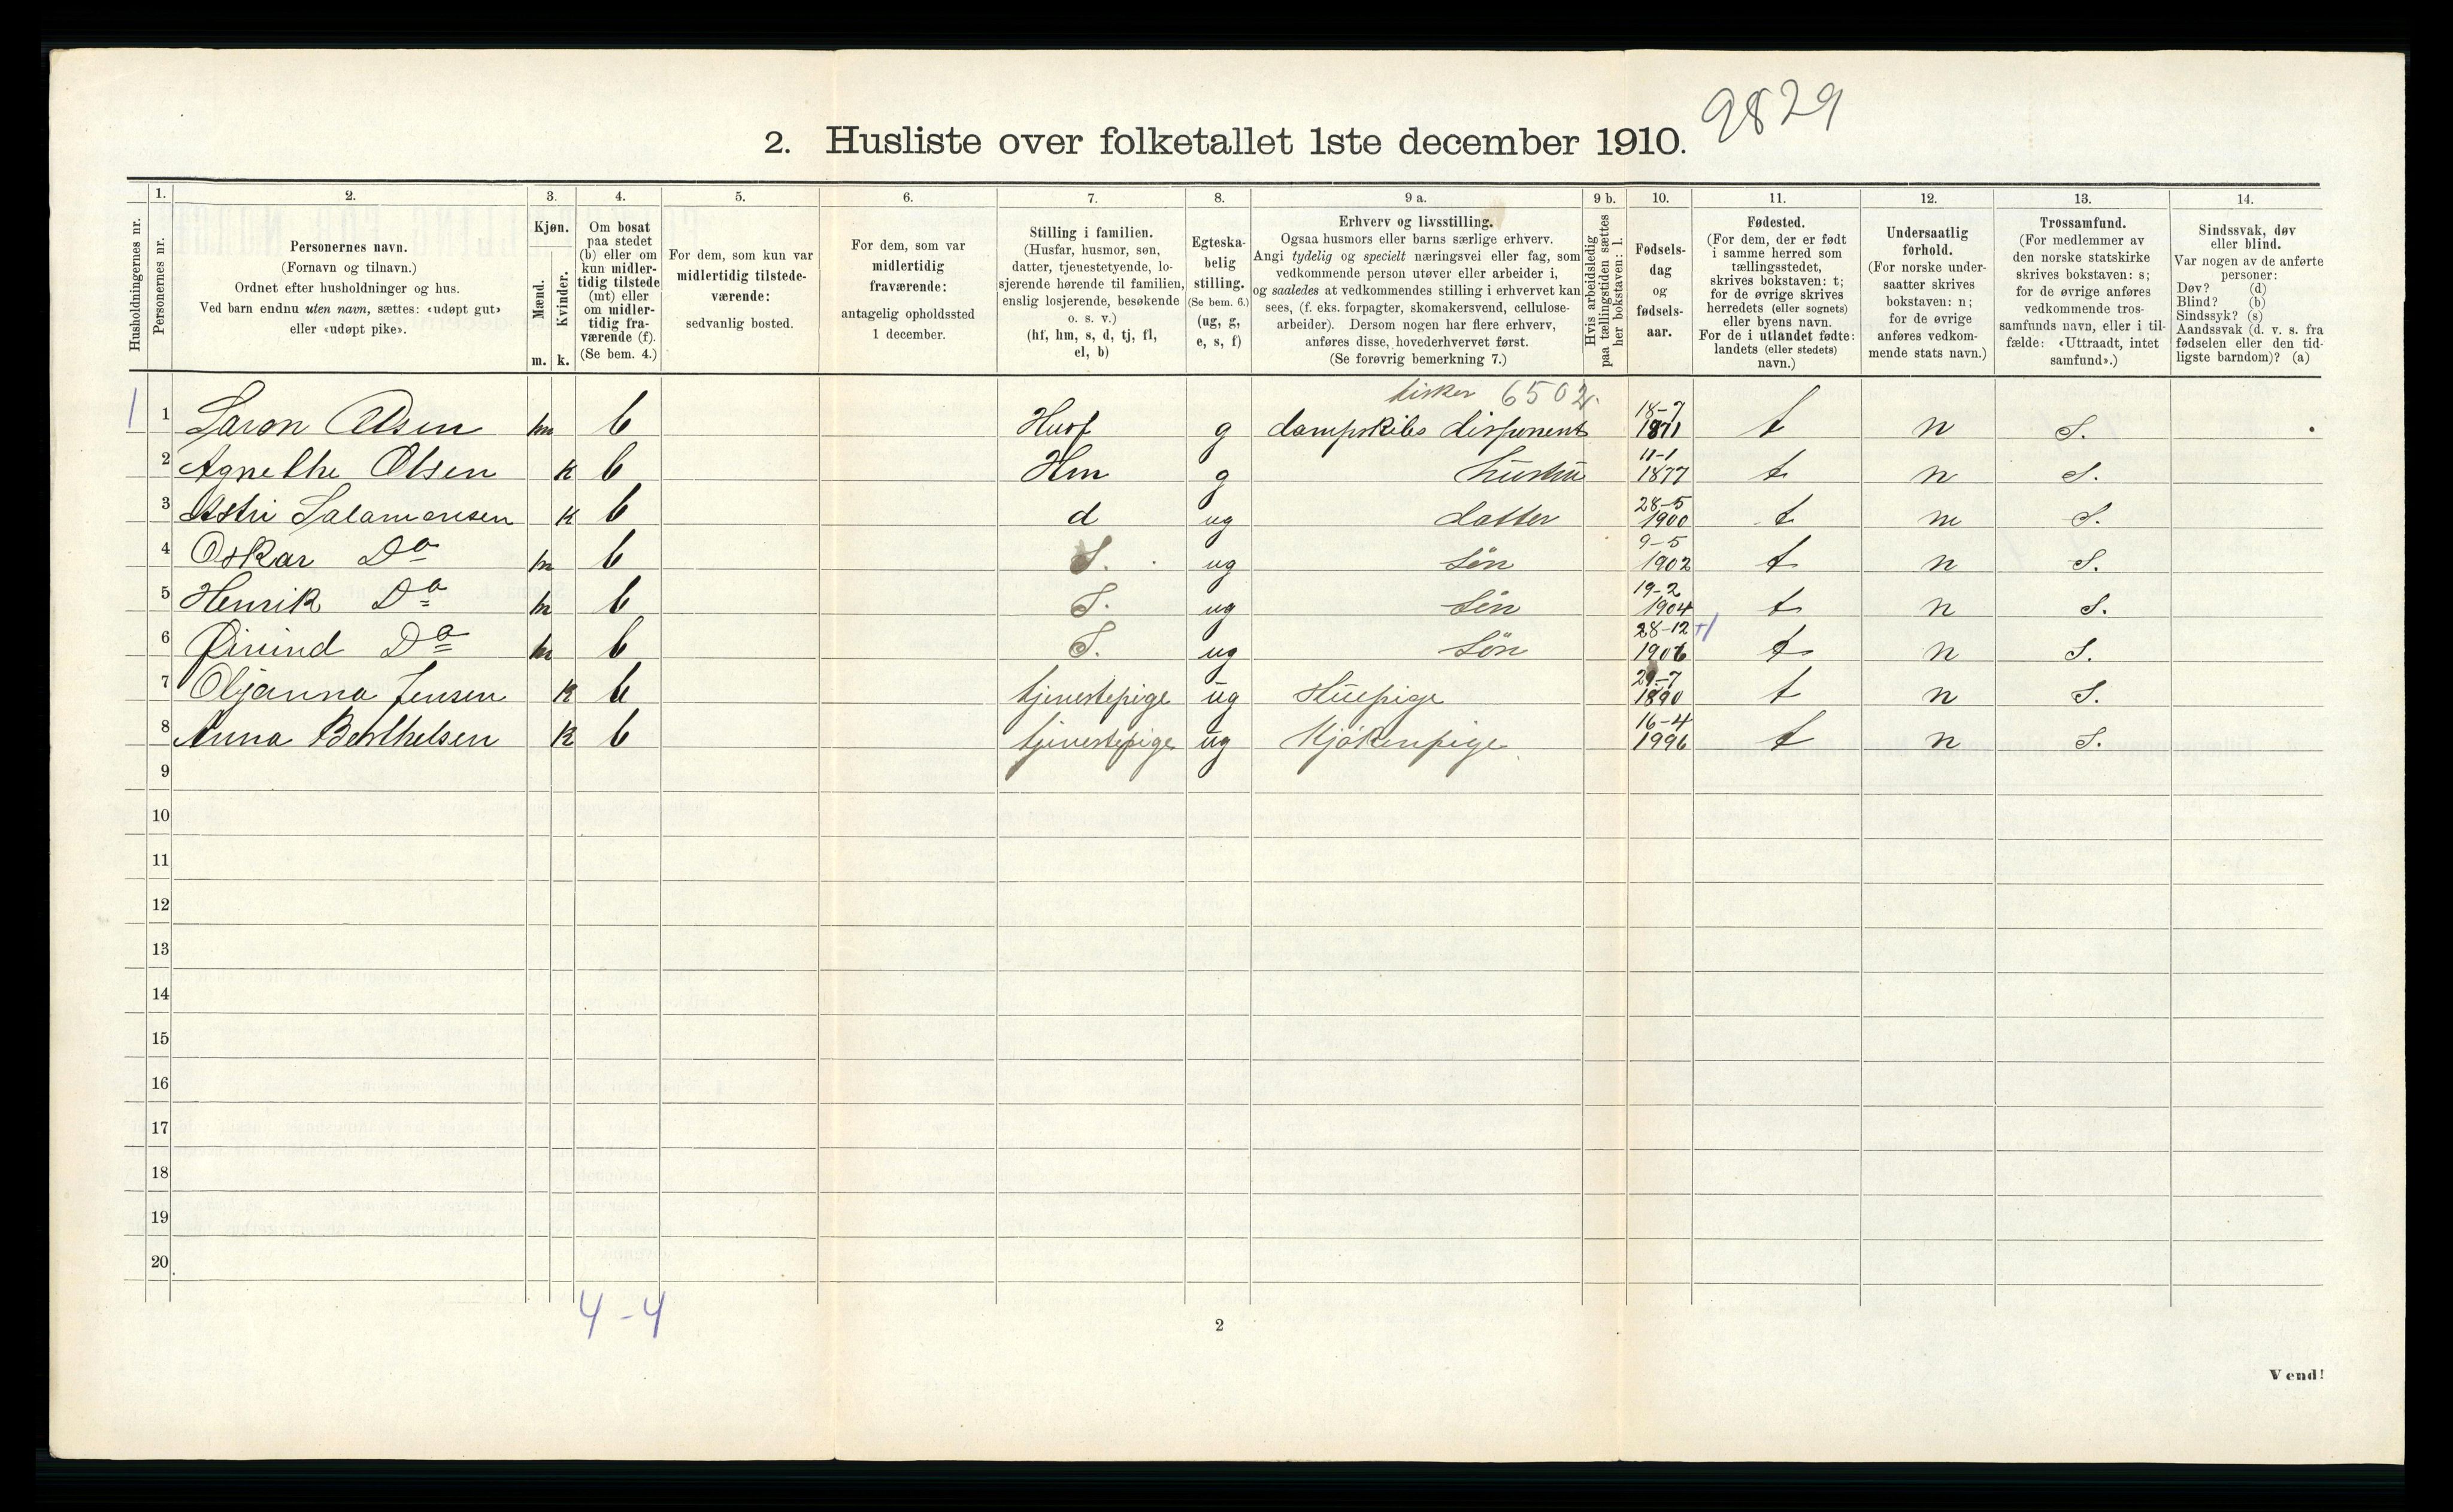 9829
2. Husliste over folketallet 1ste december 1910.
1. 2. 3. 4. 5. 6. 7. 8. 9 a. 9 b. 10. 11. 12. 13. 14.
Husholdningernes nr.
Personernes nr.
Personernes navn.
(Fornavn og tilnavn.)
Ordnet efter husholdninger og hus.
Ved barn endnu uten navn, sættes: «udøpt gut»
eller «udøpt pike».
Kjøn.
Mænd.
Kvinder.
m. k.
Om bosat
paa stedet
(b) eller om
kun midler-
tidig tilstede
(mt) eller
om midler-
tidig fra-
værende (f).
(Se bem. 4.)
For dem, som kun var
midlertidig tilstede-
værende:
sedvanlig bosted.
For dem, som var
midlertidig
fraværende:
antagelig opholdssted
1 december.
Stilling i familien.
(Husfar, husmor, søn,
datter, tjenestetyende, lo-
sjerende hørende til familien,
enslig losjerende, besøkende
o. s. v.)
(hf, hm, s, d, tj, fl,
el, b)
Egteska-
belig
stilling.
(Se bem. 6.)
(ug, g,
e, s, f)
Erhverv og livsstilling.
Ogsaa husmors eller barns særlige erhverv.
Angi tydelig og specielt næringsvei eller fag, som
vedkommende person utøver eller arbeider i,
og saaledes at vedkommendes stilling i erhvervet kan
sees, (f. eks. forpagter, skomakersvend, cellulose-
arbeider). Dersom nogen har flere erhverv,
anføres disse, hovederhvervet først.
(Se forøvrig bemerkning 7.)
Hvis arbeidsledig
paa tællingstiden sættes
her bokstaven: l.
Fødsels-
dag
og
fødsels-
aar.
Fødested.
(For dem, der er født
i samme herred som
tællingsstedet,
skrives bokstaven: t;
for de øvrige skrives
herredets (eller sognets)
eller byens navn.
For de i utlandet fødte:
landets (eller stedets)
navn.)
Undersaatlig
forhold.
(For norske under-
saatter skrives
bokstaven: n;
for de øvrige
anføres vedkom-
mende stats navn.)
Trossamfund.
(For medlemmer av
den norske statskirke
skrives bokstaven: s;
for de øvrige anføres
vedkommende tros-
samfunds navn, eller i til-
fælde: «Uttraadt, intet
samfund».)
Sindssvak, døv
eller blind.
Var nogen av de anførte
personer:
Døv? (d)
Blind? (b)
Sindssyk? (s)
Aandssvak (d. v. s. fra
fødselen eller den tid-
ligste barndom)? (a)
fisker 6502.
1 1 Saron Olsen m b Husf g dampskibs disponent 18-7 1871 t n S.
2 Agnethe Olsen k b Hm g hustru 11-1 1877 t n S.
3 Astri Salamonsen k b d ug datter 28-5 1900 t n S.
4 Oskar Do m b S. ug Sön 9-5 1902 t n S.
5 Henrik Do m b S. ug Sön 19-2 1904 t n S.
6 Øivind Do m b S. ug Sön 28-12 +1 1906 t n S.
7 Oljanna Jensen k b tjenestepige ug Stuepige 29-7 1890 t n S.
8 Anna Berthelsen k b tjenestepige ug Kjökenpige 16-4 1996 t n S.
9
10
11
12
13
14
15
16
17
18
19
20
4-4
2
Vend!